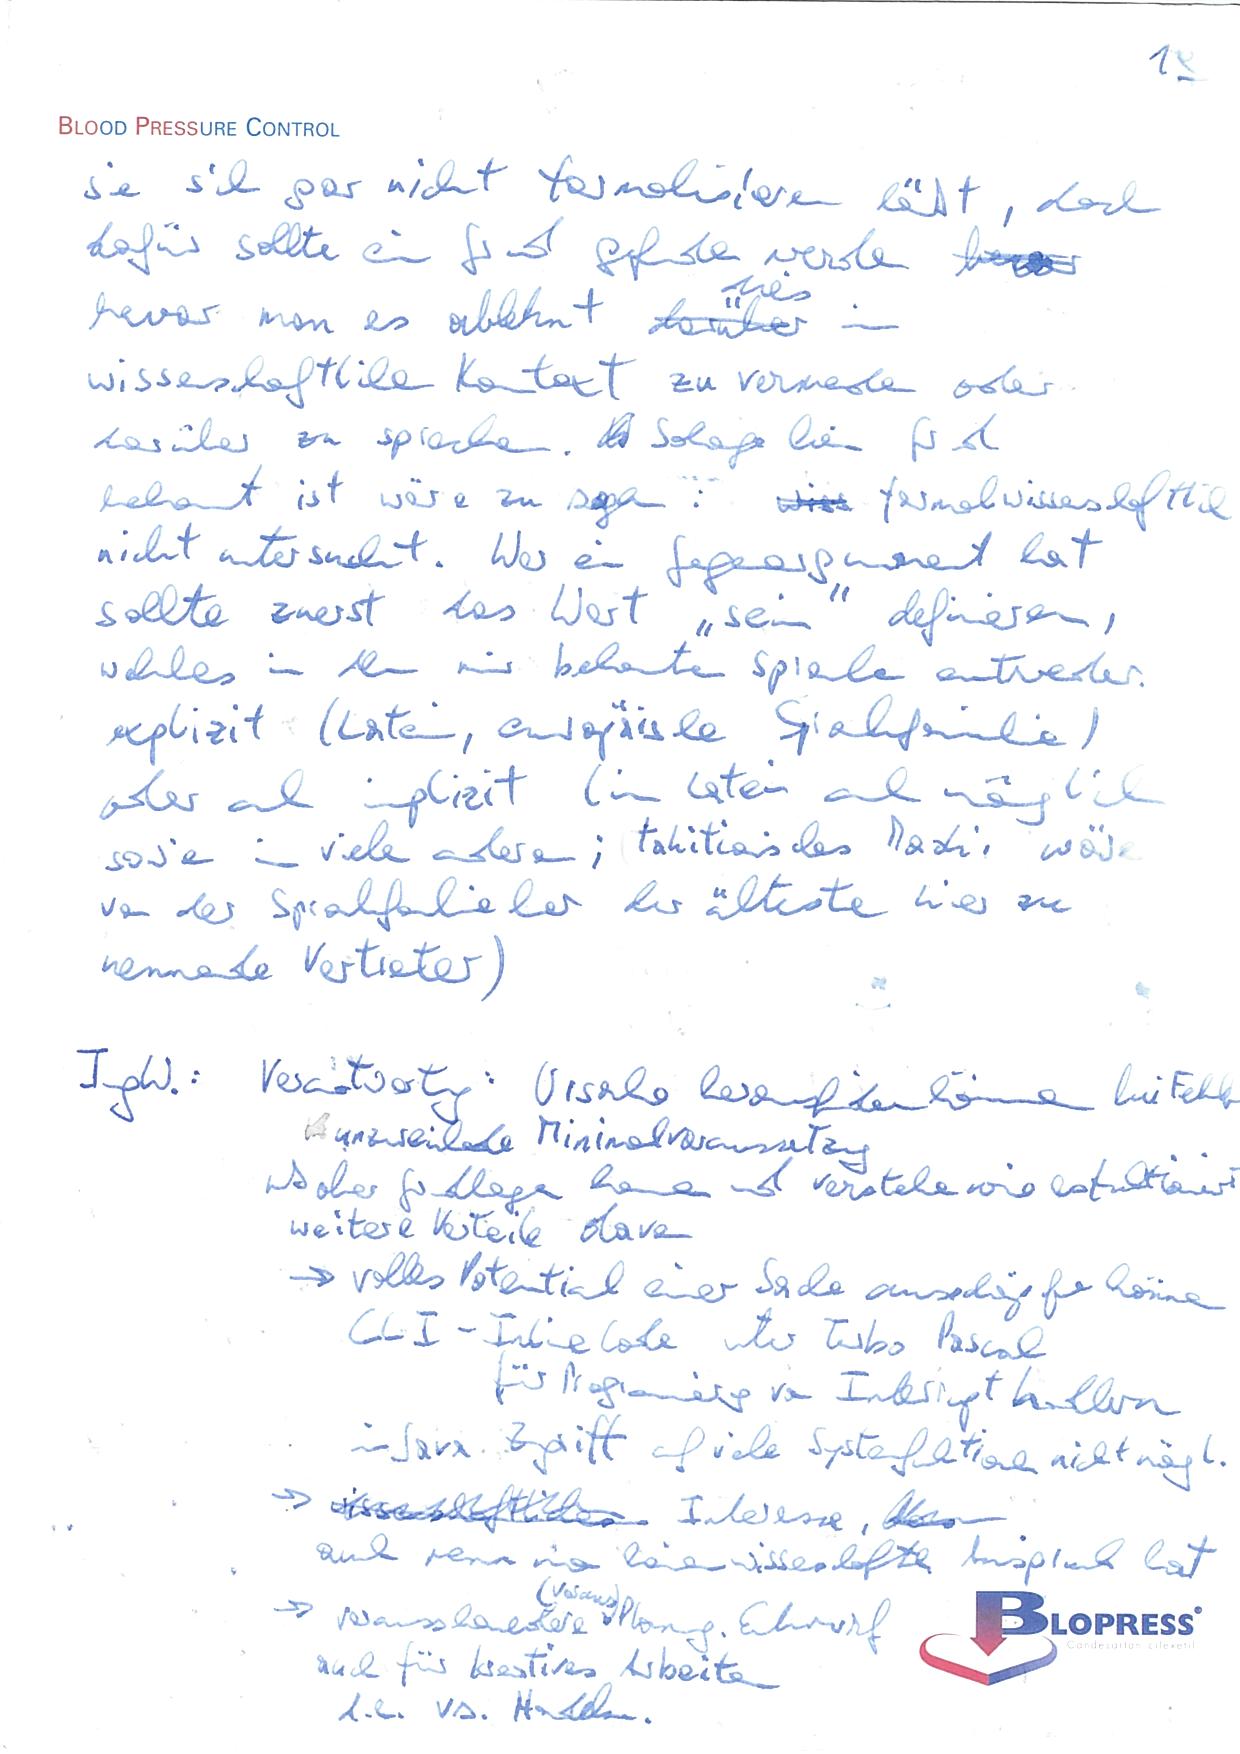 18
BLOOD PRESSURE CONTROL
sie sich gar nicht formalisieren läßt, doch
dafür sollte ein Grund gefunden werden
bevor man es ablehnt dies in
wissenschaftlichen Kontext zu vermeiden oder
darüber zu sprechen. Solange kein Grund
bekannt ist wäre zu sagen: formalwissenschaftlich
nicht untersucht. Wer ein Gegenargument hat
sollte zuerst das Wort „sein“ definieren,
welches in den mir bekannten Sprachen entweder
explizit (Latein, europäische Sprachfamilie)
oder auch implizit (in Latein auch möglich
sowie in vielen anderen; tahitianisches Maohi wäre
von der Sprachfamilie her der älteste hier zu
nennende Vertreter)
IngW.: Verantwortg: Ursache herausfinden können bei Fehl
unzureichende Minimalvoraussetzung
woher Grundlagen kommen und verstehen wie
weitere Vorteile davon
→ volles Potential einer Sache ausschöpfen können
CLI-Inline Code unter Turbo Pascal
für Programmierg von Interrupt handlern
in Java Zugriff auf viele Systemfunktionen nicht mögl.
→ Interesse,
auch wenn man keinen wissenschaftl. Anspruch hat
→ vorausschauendere (Voraus)Planung. Entwurf
auch für kreatives Arbeiten
d.e. vs. Handeln.
BLOPRESS®
Candesartan cilexetil